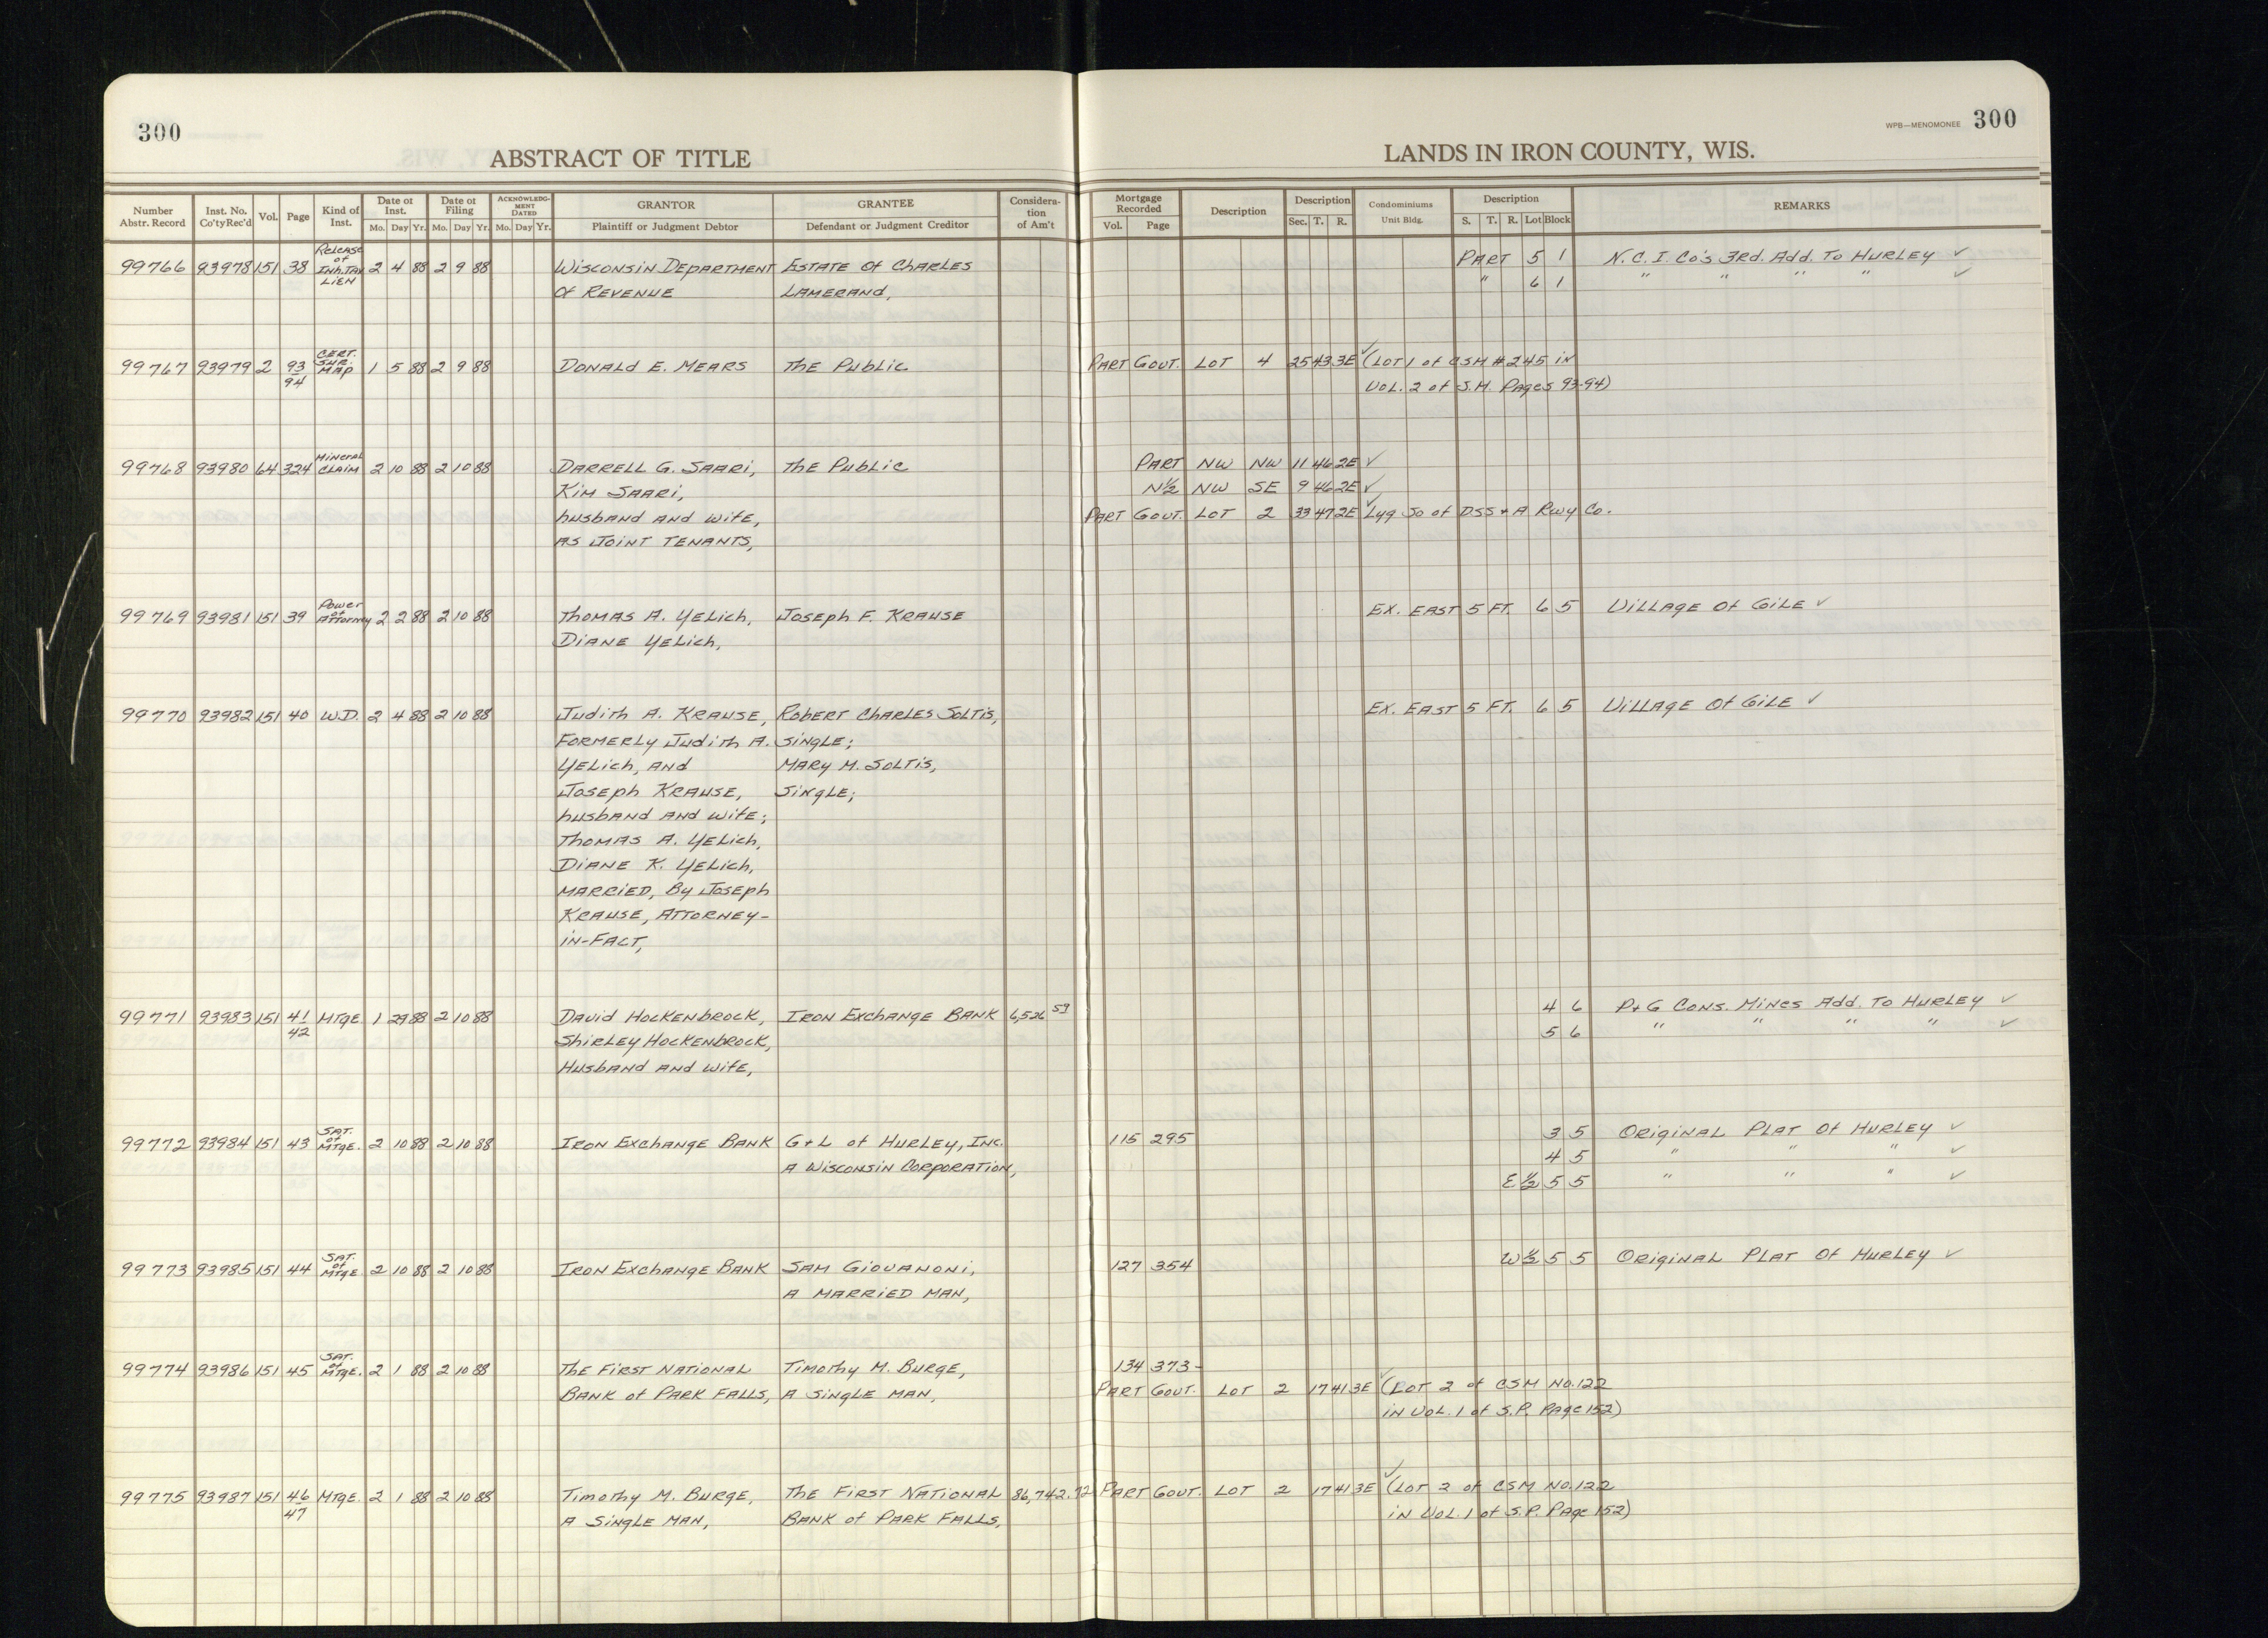 300
WPB—MENOMONEE 300
ABSTRACT OF TITLE
LANDS IN IRON COUNTY, WIS.
Number Abstr. Record | Inst. No. Co'ty Rec'd | Vol. | Page | Kind of Inst. | Date of Inst. Mo. Day Yr. | Date of Filing Mo. Day Yr. | ACKNOWLEDGMENT DATED Mo. Day Yr. | GRANTOR Plaintiff or Judgment Debtor | GRANTEE Defendant or Judgment Creditor | Consideration of Am't | Mortgage Recorded Vol. Page | Description | Description Sec. T. R. | Condominiums Unit Bldg. | Description S. T. R. Lot Block | REMARKS
99766 93978 151 38 Release of Inh. Tax Lien 2 4 88 2 9 88 Wisconsin Department Estate of Charles Part 5 1 N.C.I. Co's 3rd. Add. To Hurley ✓
of Revenue Lamerand, " 6 1 " " " " ✓
99767 93979 2 93/94 Cert. Sur. Map 1 5 88 2 9 88 Donald E. Mears The Public Part Gout. Lot 4 25 43 3E ✓ (Lot 1 of CSM #245 in
Vol. 2 of S.M. Pages 93-94)
99768 93980 64 324 Mineral Claim 2 10 88 2 10 88 Darrell G. Saari, The Public Part NW NW 11 46 2E ✓
Kim Saari, N½ NW SE 9 46 2E ✓
husband and wife, Part Gout. Lot 2 33 47 2E ✓ Lyg So of DSS & A Rwy Co.
as Joint Tenants,
99769 93981 151 39 Power of Attorney 2 2 88 2 10 88 Thomas A. Yelich, Joseph F. Krause Ex. East 5 Ft. 6 5 Village of Gile ✓
Diane Yelich,
99770 93982 151 40 W.D. 2 4 88 2 10 88 Judith A. Krause, Robert Charles Soltis, Ex. East 5 Ft. 6 5 Village of Gile ✓
formerly Judith A. single;
Yelich, and Mary M. Soltis,
Joseph Krause, single;
husband and wife;
Thomas A. Yelich,
Diane K. Yelich,
married, by Joseph
Krause, Attorney-
in-Fact,
99771 93983 151 41/42 Mtge 1 29 88 2 10 88 David Hockenbrock, Iron Exchange Bank 6,526 59 4 6 P+G Cons. Mines Add. To Hurley ✓
Shirley Hockenbrock, 5 6 " " " " ✓
Husband and wife,
99772 93984 151 43 Sat. of Mtge. 2 10 88 2 10 88 Iron Exchange Bank G+L of Hurley, Inc. 115 295 3 5 Original Plat of Hurley ✓
a Wisconsin Corporation, 4 5 " " " ✓
E½ 5 5 " " " ✓
99773 93985 151 44 Sat. of Mtge 2 10 88 2 10 88 Iron Exchange Bank Sam Giovanoni, 127 354 W½ 5 5 Original Plat of Hurley ✓
a married man,
99774 93986 151 45 Sat. of Mtge. 2 1 88 2 10 88 The First National Timothy M. Burge, 134 373-
Bank of Park Falls, a single man, Part Gout. Lot 2 17 41 3E ✓ (Lot 2 of CSM No. 122
in Vol. 1 of S.P. Page 152)
99775 93987 151 46/47 Mtge. 2 1 88 2 10 88 Timothy M. Burge, The First National 86,742.72 Part Gout. Lot 2 17 41 3E ✓ (Lot 2 of CSM No. 122
a single man, Bank of Park Falls, in Vol. 1 of S.P. Page 152)